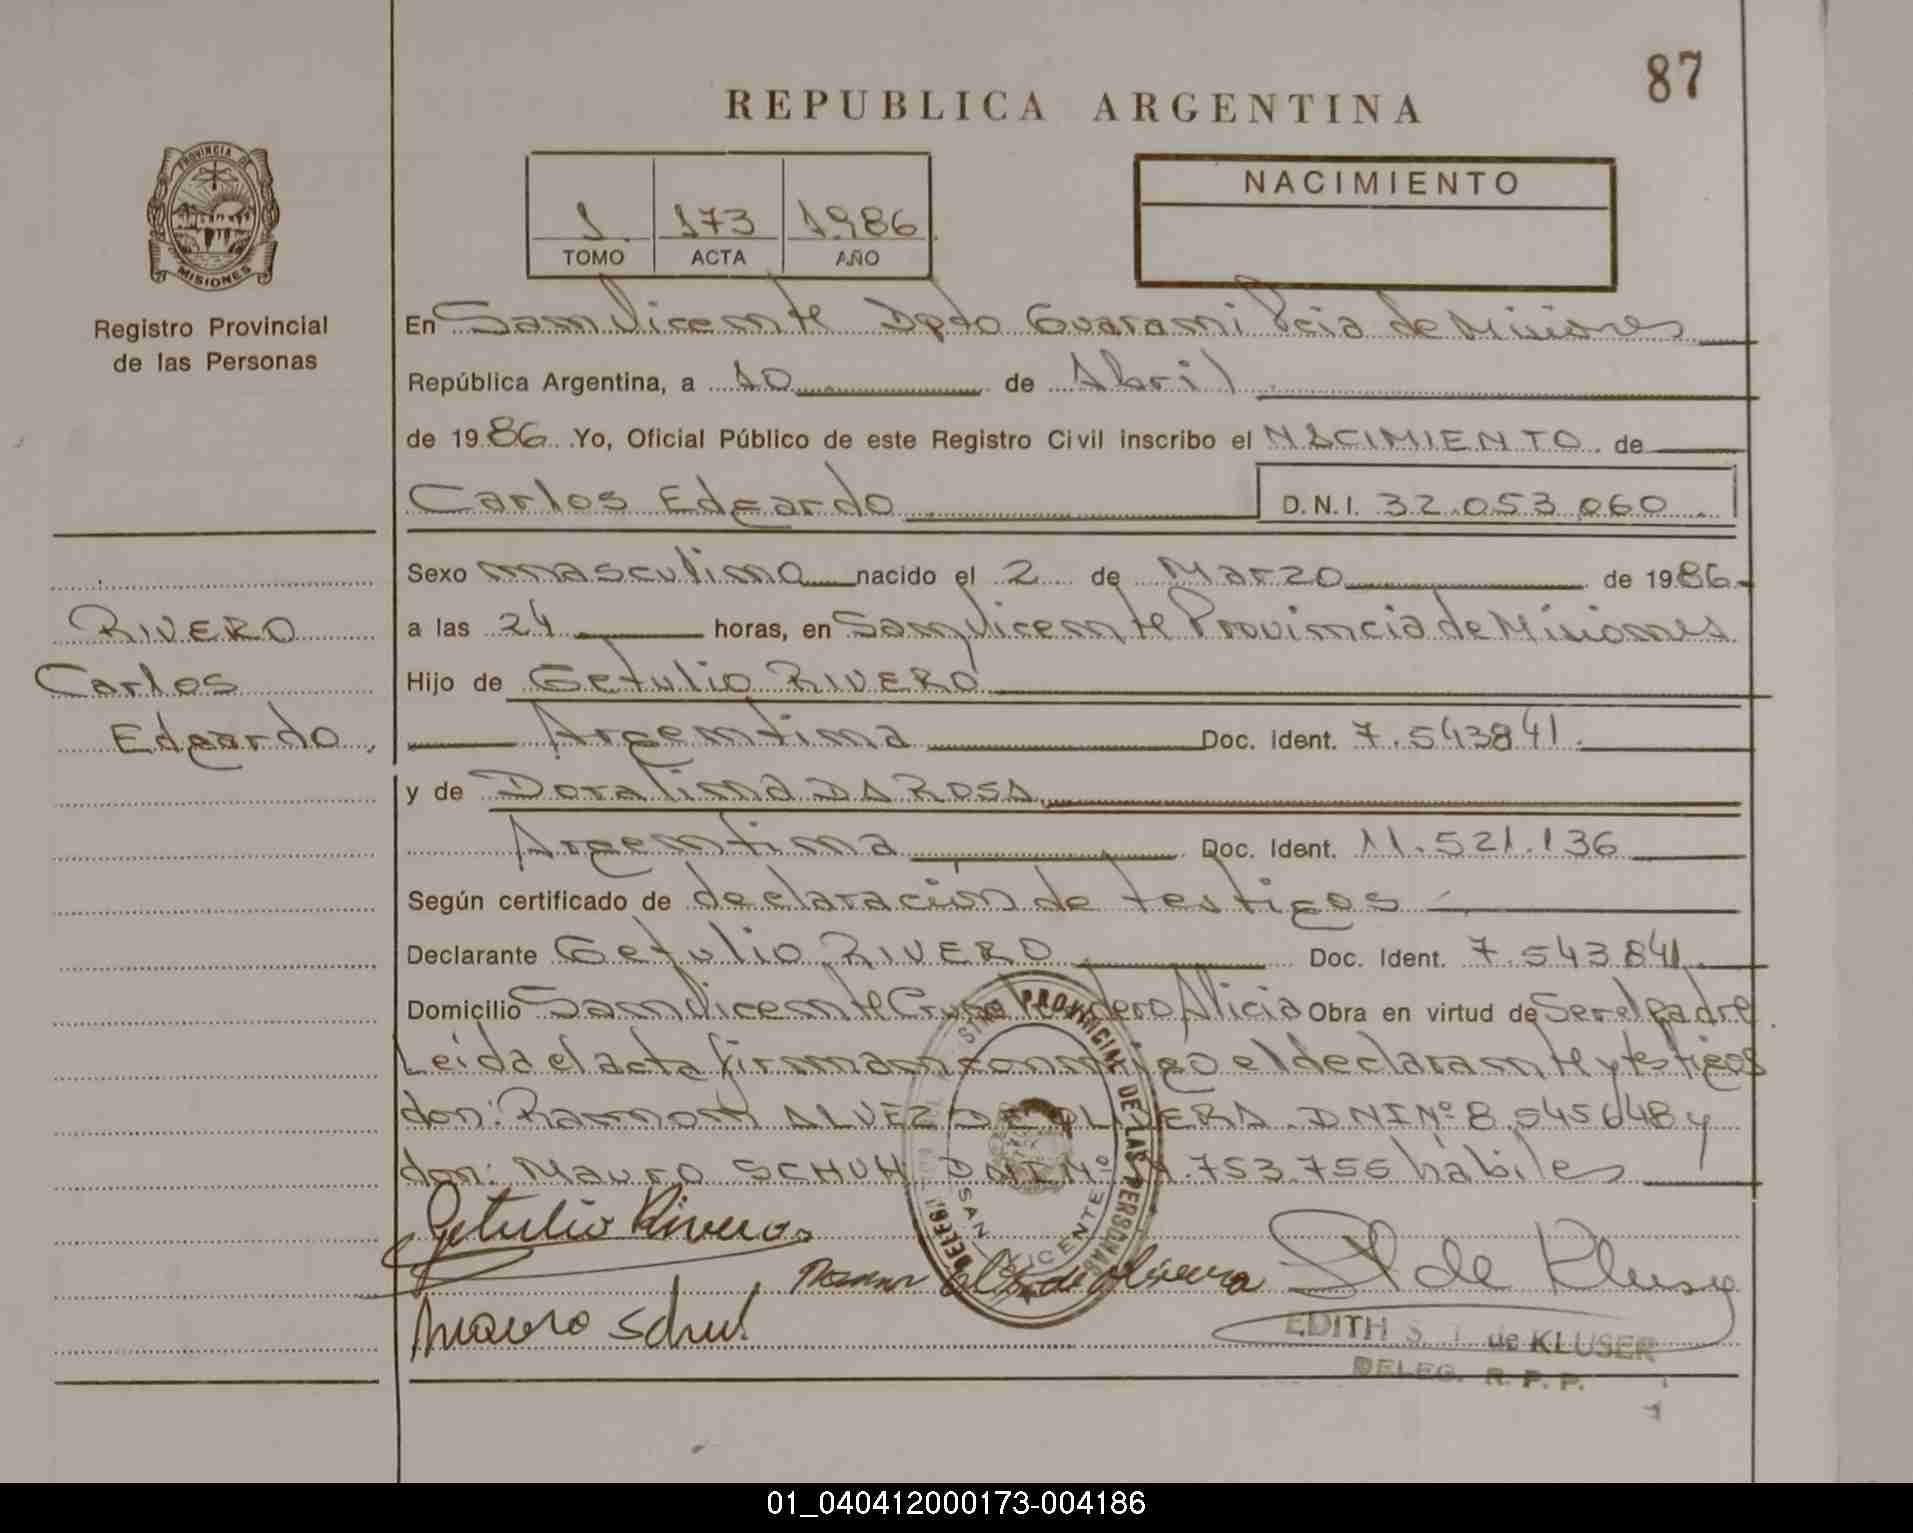 87
REPUBLICA ARGENTINA
PROVINCIA DE
MISIONES
Registro Provincial
de las Personas
1 173 1986
TOMO ACTA AÑO
NACIMIENTO
En San Vicente Dpto Guarani Pcia de Misiones
República Argentina, a 10 de Abril
de 1986. Yo, Oficial Público de este Registro Civil inscribo el NACIMIENTO de
Carlos Edgardo D.N.I. 32.053.060
Sexo masculino nacido el 2 de Marzo de 1986
a las 24 horas, en San Vicente Provincia de Misiones
RIVERO
Carlos
Edgardo
Hijo de Getulio RIVERO
Argentina Doc. Ident. 7.543841.
y de Doralina DA ROSA
Argentina Doc. Ident. 11.521.136
Según certificado de declaración de testigos
Declarante Getulio RIVERO Doc. Ident. 7.543.841
Domicilio San Vicente Alicia Obra en virtud de Ser el padre.
Leida el acta firman conmigo el declarante y testigos
don: Ramon ALVEZ DE OLIVERA. DNI Nº 8.545648 y
don: Mauro SCHUH DNI Nº .753.756 hábiles
REGISTRO PROVINCIAL DE LAS PERSONAS
SAN VICENTE
Getulio Rivero
de Olivera
de Kluser
Mauro Schuh
EDITH S. de KLUSER
DELEG. R. P. P.
01_040412000173-004186